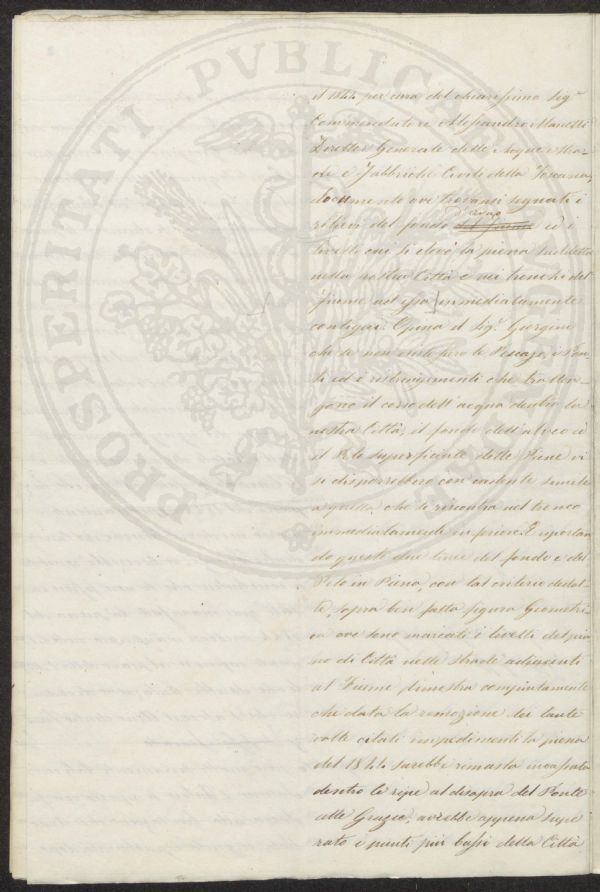 il 1844 per cura del chiarissimo Sig.r
Commendatore Alessandro Manetti
Direttor Generale delle Acque e Stra-
de e Fabbriche Civili della Toscana,
documento ove trovansi segnati i
d'Arno
rilievi del fondo del fiume ed i
livelli cui si elevò la piena suddetta
nella nostra Città e nei tronchi del
fiume ad essa immediatamente
contigui. Opina il Sig.r Giorgini
che se non esistessero le Pescaje, i Pon-
ti ed i restringimenti che tratten-
gono il corso dell'acqua dentro la
nostra Città, il fondo dell'alveo ed
il Pelo superficiale delle Piene vi
si disporrebbero con cadente simile
a quella che si riscontra nel tronco
immediatamente inferiore. E riportan-
do queste due linee del fondo e del
Pelo in Piena, con tal criterio dedot-
te, sopra ben fatta figura Geometri-
ca ove sono marcati i livelli del pia-
no di Città nelle strade adiacenti
al Fiume dimostra compiutamente
che data la remozione dei tante
volte citati impedimenti la piena
del 1844 sarebbe rimasta incassata
dentro le ripe al disopra del Ponte
alle Grazie, avrebbe appena supe-
rato i punti più bassi della Città
PROSPERITATI PVBLICAE